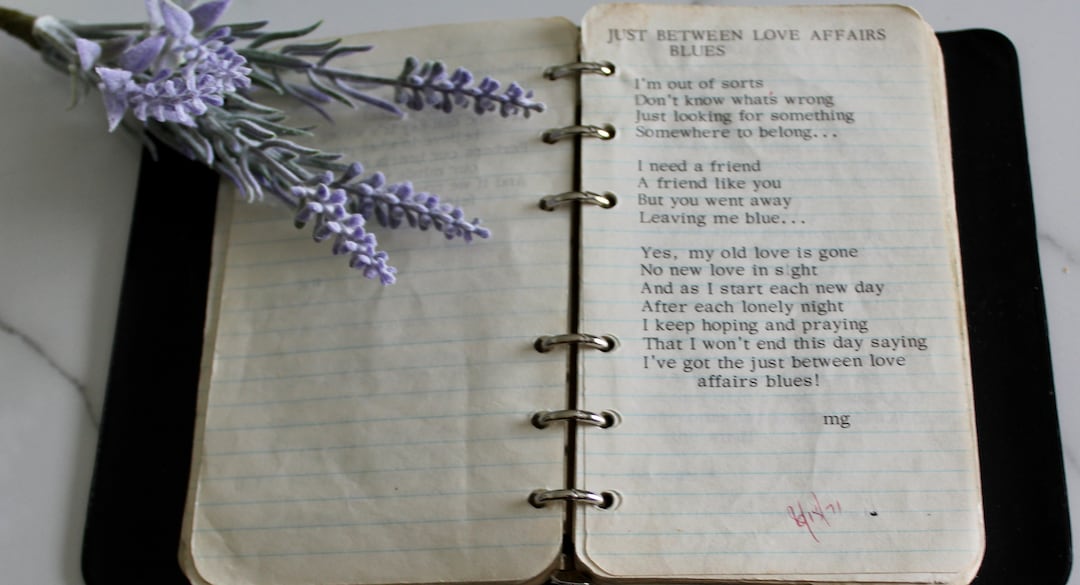 JUST BETWEEN LOVE AFFAIRS
BLUES
I'm out of sorts
Don't know what's wrong
Just looking for something
Somewhere to belong...
I need a friend
A friend like you
But you went away
Leaving me blue...
Yes, my old love is gone
No new love in sight
And as I start each new day
After each lonely night
I keep hoping and praying
That I won't end this day saying
I've got the just between love
affairs blues!
mg